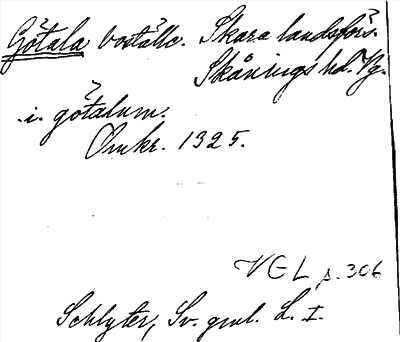 Götala boställe. Skara landsförs.
Skånings hd. Vg.
.i. götalum.
Omkr. 1325.
VGL s. 306
Schlyter, Sv. gml. L. I.